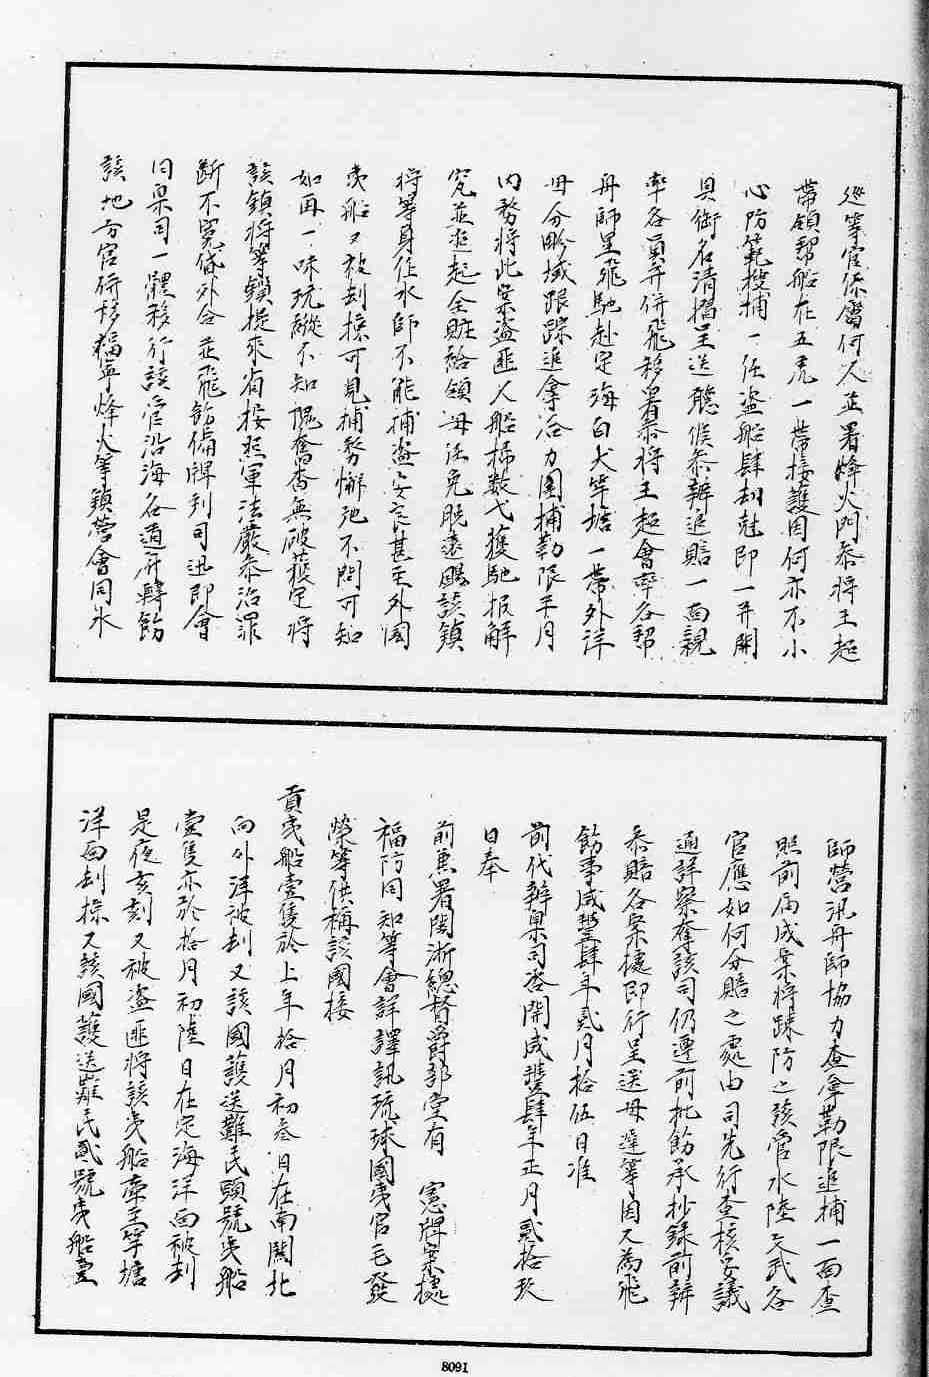 巡等官係屬何人並署烽火門叅將王超
帶領帮船在五虎一帶接護因何亦不小
心防範搜捕一任盜船肆刦兠即一并開
具銜名清摺呈送聽候叅辦追賠一面親
率各員弁併飛移署叅將王超會率各帮
舟師星飛馳赴定海白犬竿塘一帶外洋
毋分畛域跟踪進拿洽力圍捕勒限半月
內務將此案盜匪人船掃數弋獲馳报解
究並追起全賍給領毋任免脱遠颺該鎮
将等身任水師不能捕盜安良甚至外国
夷船又被刦掠可見捕務懈弛不問可知
如再一味玩縱不知愧奮杳無破獲定将
該鎮将等鎖提來省按照軍法嚴叅治罪
断不寛貸外合並飛飭偹牌到司迅即會
同臬司一體移行該管沿海各道府轉飭
該地方官併移福寧烽火等鎮營會同水
師營汛舟師協力查拿勒限追捕一面查
照前兩成案将踈防之該管水陸文武各
官應如何分賠之處由司先行查核妥議
通詳察奪該司仍遵前批飭承抄錄前辦
叅賠各案據即行呈送毋違等因又為飛
飭事咸豐肆年貳月拾伍日准
前代辦臬司咨開咸豐肆年正月貳拾玖
日奉
前兼署閩浙總督爵部堂有 憲牌案據
福防同知等會詳譯訊琉球國夷官毛發
榮等供稱該國接
貢夷船壹隻於上年拾月初叁日在南關北
向外洋被刦又該國護送難民頭號夷船
壹隻亦於拾月初陸日在定海洋面被刦
是夜亥刻又被盜匪將該夷船牽至竿塘
洋面刦掠又該國護送難民貳號夷船壹
8091